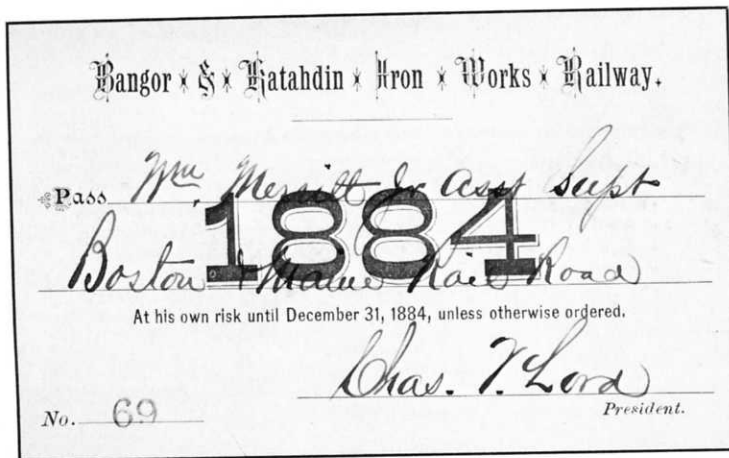 Bangor & Katahdin Iron Works Railway.
Pass Wm. Merritt Jr Asst Supt
1884
Boston & Maine Rail Road
At his own risk until December 31, 1884, unless otherwise ordered.
Chas. V. Lord
President.
No. 69